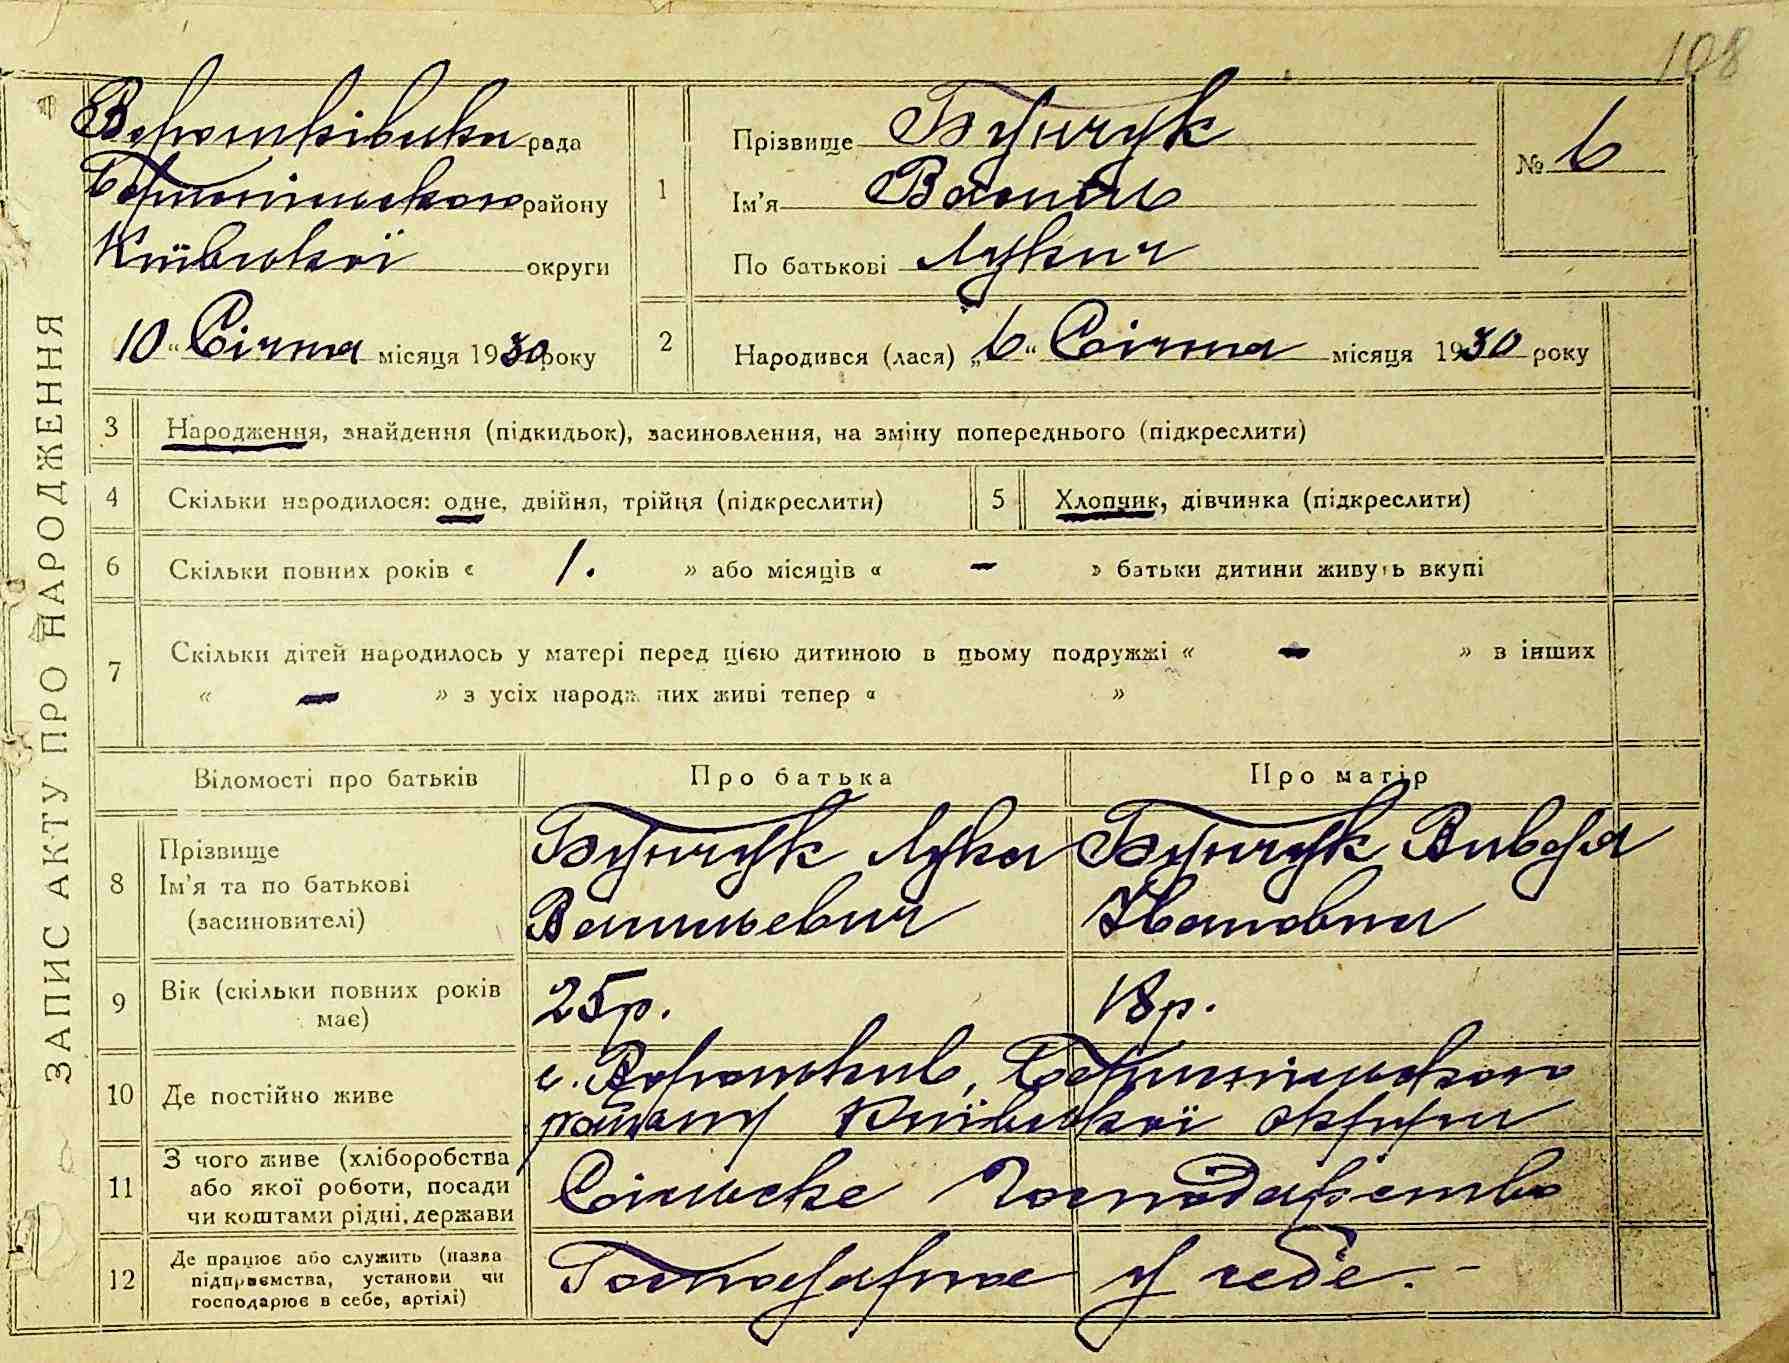 108
ЗАПИС АКТУ ПРО НАРОДЖЕННЯ
Вороньківська рада
Бориспільського району
Київської округи
10 " Січня місяця 1930 року
1
Прізвище Бунчук
Ім'я Василь
По батькові Лукич
№ 6
2
Народився (лася) „6" Січня місяця 1930 року
3 Народження, знайдення (підкидьок), засиновлення, на зміну попереднього (підкреслити)
4 Скільки народилося: одне, двійня, трійця (підкреслити)
5 Хлопчик, дівчинка (підкреслити)
6 Скільки повних років « 1. » або місяців « - » батьки дитини живуть вкупі
7 Скільки дітей народилось у матері перед цією дитиною в цьому подружжі « - » в інших
« - » з усіх народжених живі тепер « »
Відомості про батьків Про батька Про матір
8 Прізвище
Ім'я та по батькові
(засиновителі)
Бунчук Лука
Васильевич
Бунчук Вивдя
Ивановна
9 Вік (скільки повних років
має)
25р. 18р.
10 Де постійно живе
с. Вороньків, Бориспільського
району Київської округи
11 З чого живе (хліборобства
або якої роботи, посади
чи коштами рідні, держави
Сільське Господарство
12 Де працює або служить (назва
підприємства, установи чи
господарює в себе, артілі)
Господарює у себе. -